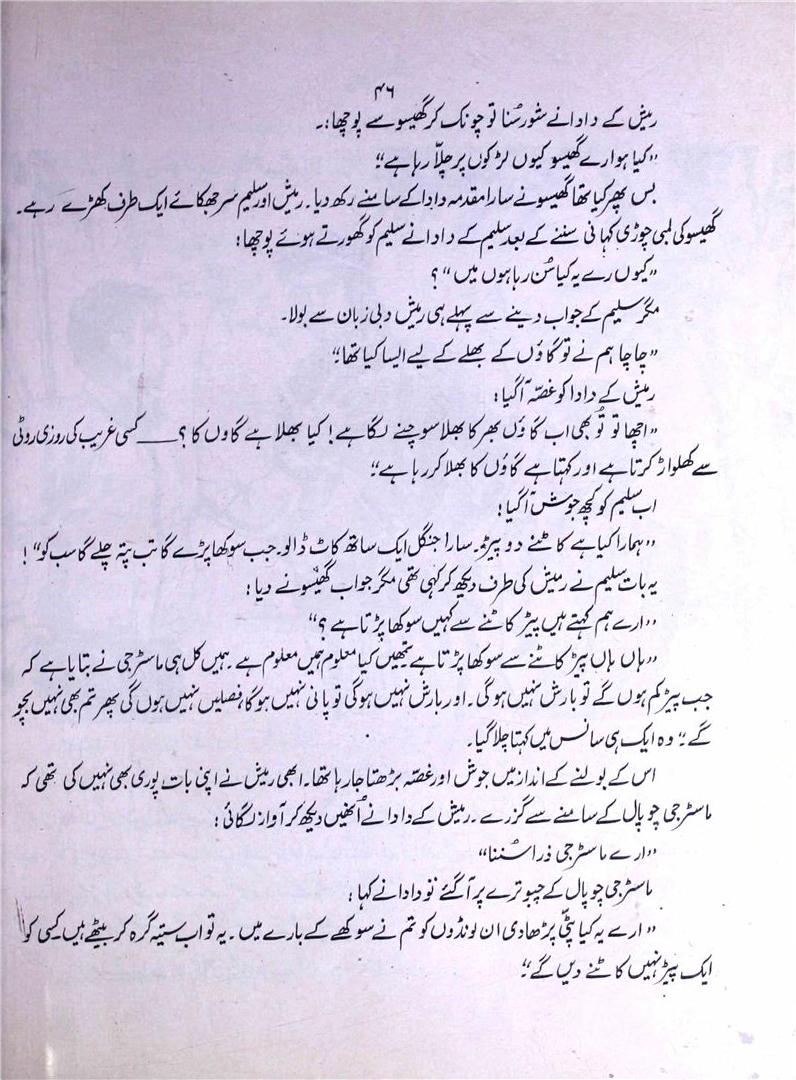 ۴۶
رمیش کے دادا نے شور سُنا تو چونک کر گھیسو سے پوچھا:۔
"کیا ہوا رے گھیسو کیوں لڑکوں پر چلّا رہا ہے"؟
بس پھر کیا تھا گھیسو نے سارا مقدمہ دادا کے سامنے رکھ دیا۔ رمیش اور سلیم سر جھکائے ایک طرف کھڑے رہے۔
گھیسو کی لمبی چوڑی کہانی سننے کے بعد سلیم کے دادا نے سلیم کو گھورتے ہوئے پوچھا:
"کیوں رے یہ کیا سُن رہا ہوں میں"؟
مگر سلیم کے جواب دینے سے پہلے ہی رمیش دبی زبان سے بولا۔
"چاچا ہم نے تو گاؤں کے بھلے کے لیے ایسا کیا تھا"۔
رمیش کے دادا کو غصّہ آگیا:
"اچھا تو تُو بھی اب گاؤں بھر کا بھلا سوچنے لگا ہے! کیا بھلا ہے گاوں کا؟ —— کسی غریب کی روزی روٹی
سے کھلواڑ کرتا ہے اور کہتا ہے گاؤں کا بھلا کر رہا ہے"۔
اب سلیم کو کچھ جوش آگیا!
"ہمارا کیا ہے کاٹنے دو پیڑ۔ سارا جنگل ایک ساتھ کاٹ ڈالو۔ جب سوکھا پڑے گا تب پتہ چلے گا سب کو"!
یہ بات سلیم نے رمیش کی طرف دیکھ کر کہی تھی مگر جواب گھیسو نے دیا:
"ارے ہم کہتے ہیں پیڑ کاٹنے سے کہیں سوکھا پڑتا ہے؟"
"ہاں ہاں پیڑ کاٹنے سے سوکھا پڑتا ہے تمھیں کیا معلوم ہمیں معلوم ہے۔ ہمیں کل ہی ماسٹر جی نے بتایا ہے کہ
جب پیڑ کم ہوں گے تو بارش نہیں ہوگی۔ اور بارش نہیں ہوگی تو پانی نہیں ہوگا فصلیں نہیں ہوں گی پھر تم بھی نہیں بچو
گے"۔ وہ ایک ہی سانس میں کہتا چلا گیا۔
اس کے بولنے کے انداز میں جوش اور غصّہ بڑھتا جا رہا تھا۔ ابھی رمیش نے اپنی بات پوری بھی نہیں کی تھی کہ
ماسٹر جی چوپال کے سامنے سے گزرے۔ رمیش کے دادا نے اُنھیں دیکھ کر آواز لگائی:
"ارے ماسٹر جی ذرا سُننا"
ماسٹر جی چوپال کے چبوترے پر آگئے تو دادا نے کہا:
"ارے یہ کیا پٹّی پڑھا دی ان لونڈوں کو تم نے سوکھے کے بارے میں۔ یہ تو اب ستیہ گرہ کر بیٹھے ہیں کسی کو
ایک پیڑ نہیں کاٹنے دیں گے"۔